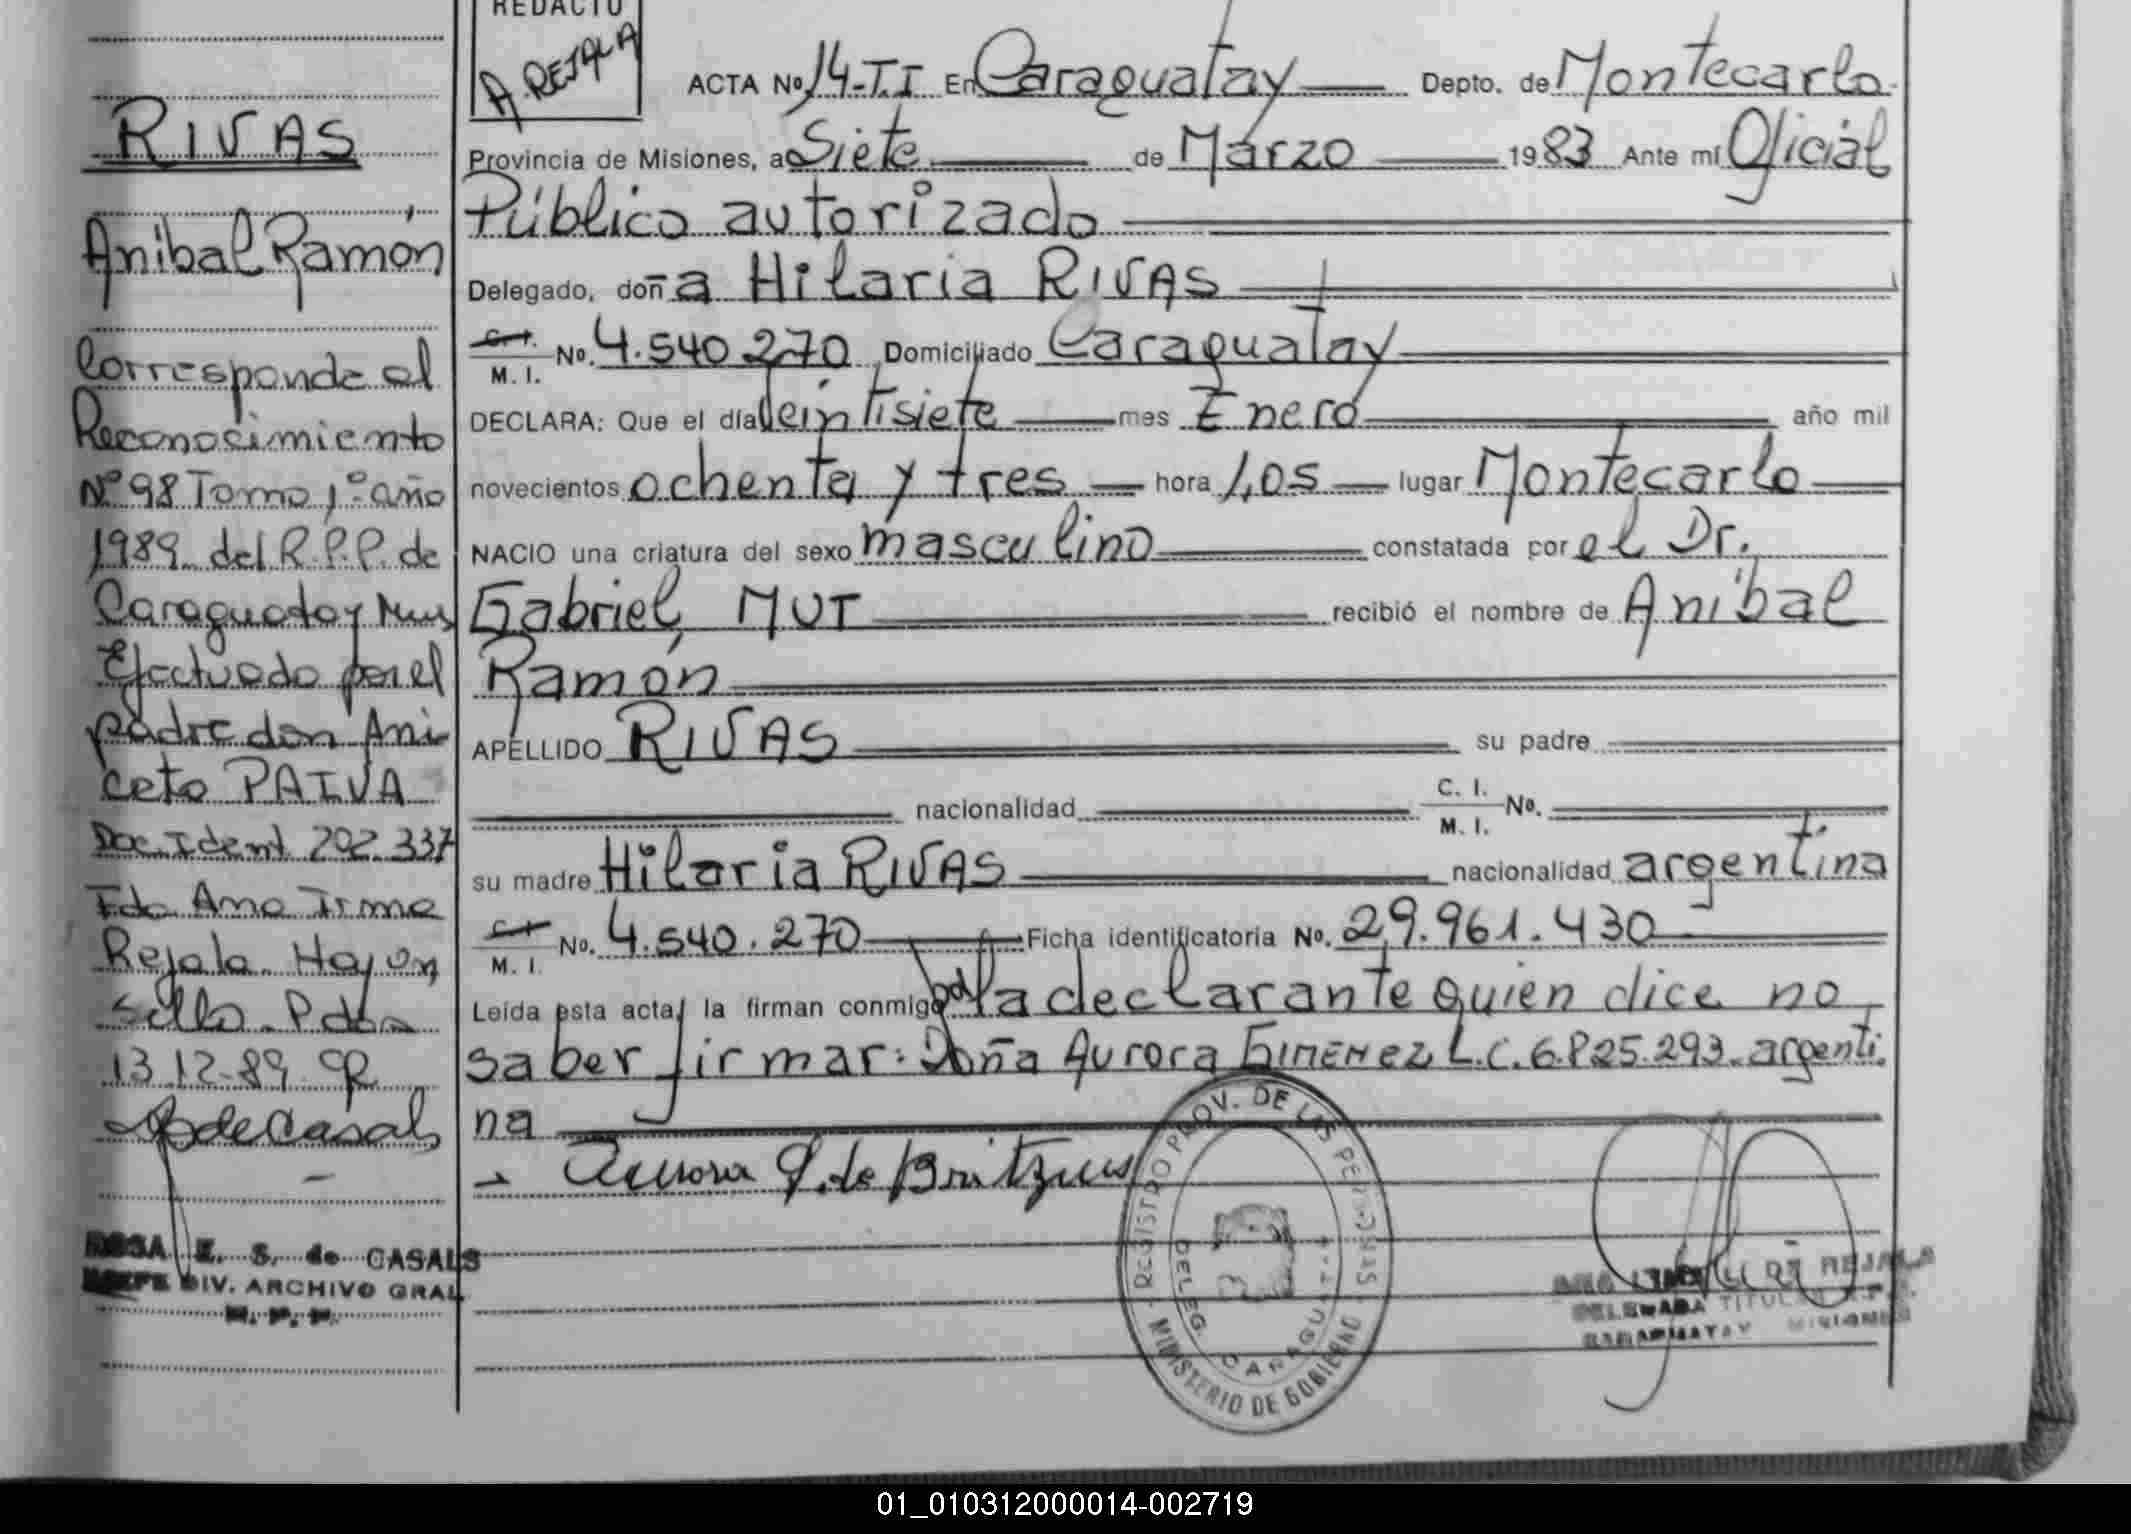 REDACTO
A. REJALA
ACTA No. 14-T.I En Caraguatay Depto. de Montecarlo
Provincia de Misiones, a Siete de Marzo 1983 Ante mí Oficial
Público autorizado
Delegado, doña Hilaria RIVAS
C.I. M. I. No. 4.540.270 Domiciliado Caraguatay
DECLARA: Que el día Veintisiete mes Enero año mil
novecientos ochenta y tres hora 1,05 lugar Montecarlo
NACIO una criatura del sexo masculino constatada por el Dr.
Gabriel MUT recibió el nombre de Aníbal
Ramón
APELLIDO RIVAS su padre
nacionalidad C. I. M. I. No.
su madre Hilaria RIVAS nacionalidad argentina
C.I. M. I. No. 4.540.270 Ficha identificatoria No. 29.961.430
Leída esta acta, la firman conmigo por la declarante quien dice no
saber firmar: Doña Aurora GIMENEZ L.C. 6.825.293. argenti
na
Aurora G. de Britzius
REGISTRO PROV. DE LAS PERSONAS
MINISTERIO DE GOBIERNO
DELEG. CARAGUATAY
REJALA
DELEGADA TITULAR
CARAGUATAY MISIONES
RIVAS
Aníbal Ramón
Corresponde al
Reconocimiento
Nº 98 Tomo 1º año
1989 del R.P.P. de
Caraguatay Mns
Efectuado por el
padre don Ani
ceto PAIVA
Doc. Ident. 202.337
Fdo Ana Irma
Rejala. Hay un
sello. Pdas
13.12.89
de Casals
ROSA E. S. de CASALS
JEFE DIV. ARCHIVO GRAL
01_010312000014-002719